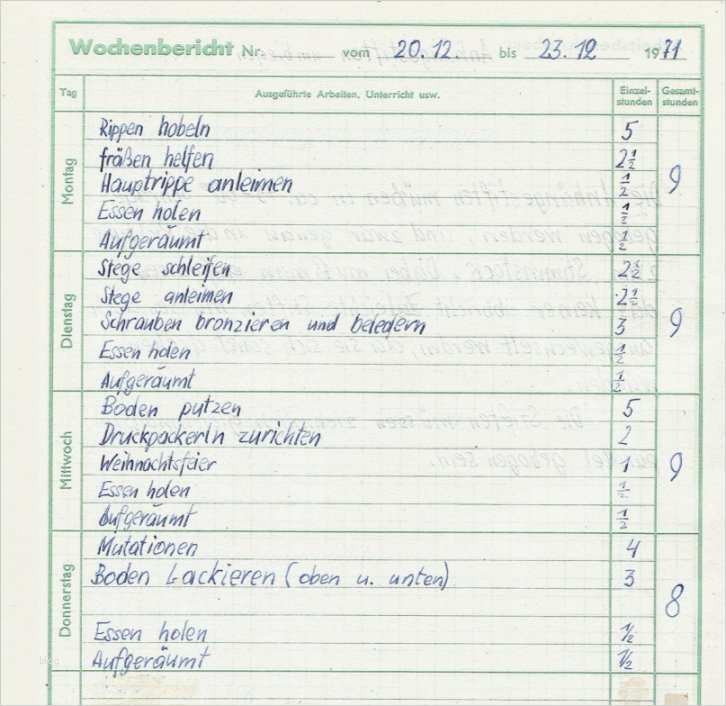 Wochenbericht Nr. vom 20.12. bis 23.12 1971
Tag Ausgeführte Arbeiten, Unterricht usw. Einzel-stunden Gesamt-stunden
Montag
Rippen hobeln 5
fräßen helfen 2 1/2
Hauptrippe anleimen 1/2
Essen holen 1/2
Aufgeräumt 1/2
9
Dienstag
Stege schleifen 2 1/2
Stege anleimen 2 1/2
Schrauben bronzieren und beledern 3
Essen holen 1/2
Aufgeräumt 1/2
9
Mittwoch
Boden putzen 5
Druckpackerln zurichten 2
Weihnachtsfeier 1
Essen holen 1/2
Aufgeräumt 1/2
9
Donnerstag
Mutationen 4
Boden Lackieren (oben u. unten) 3
Essen holen 1/2
Aufgeräumt 1/2
8